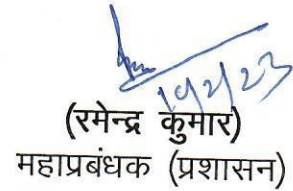 19/2/23
(रमेन्द्र कुमार)
महाप्रबंधक (प्रशासन)